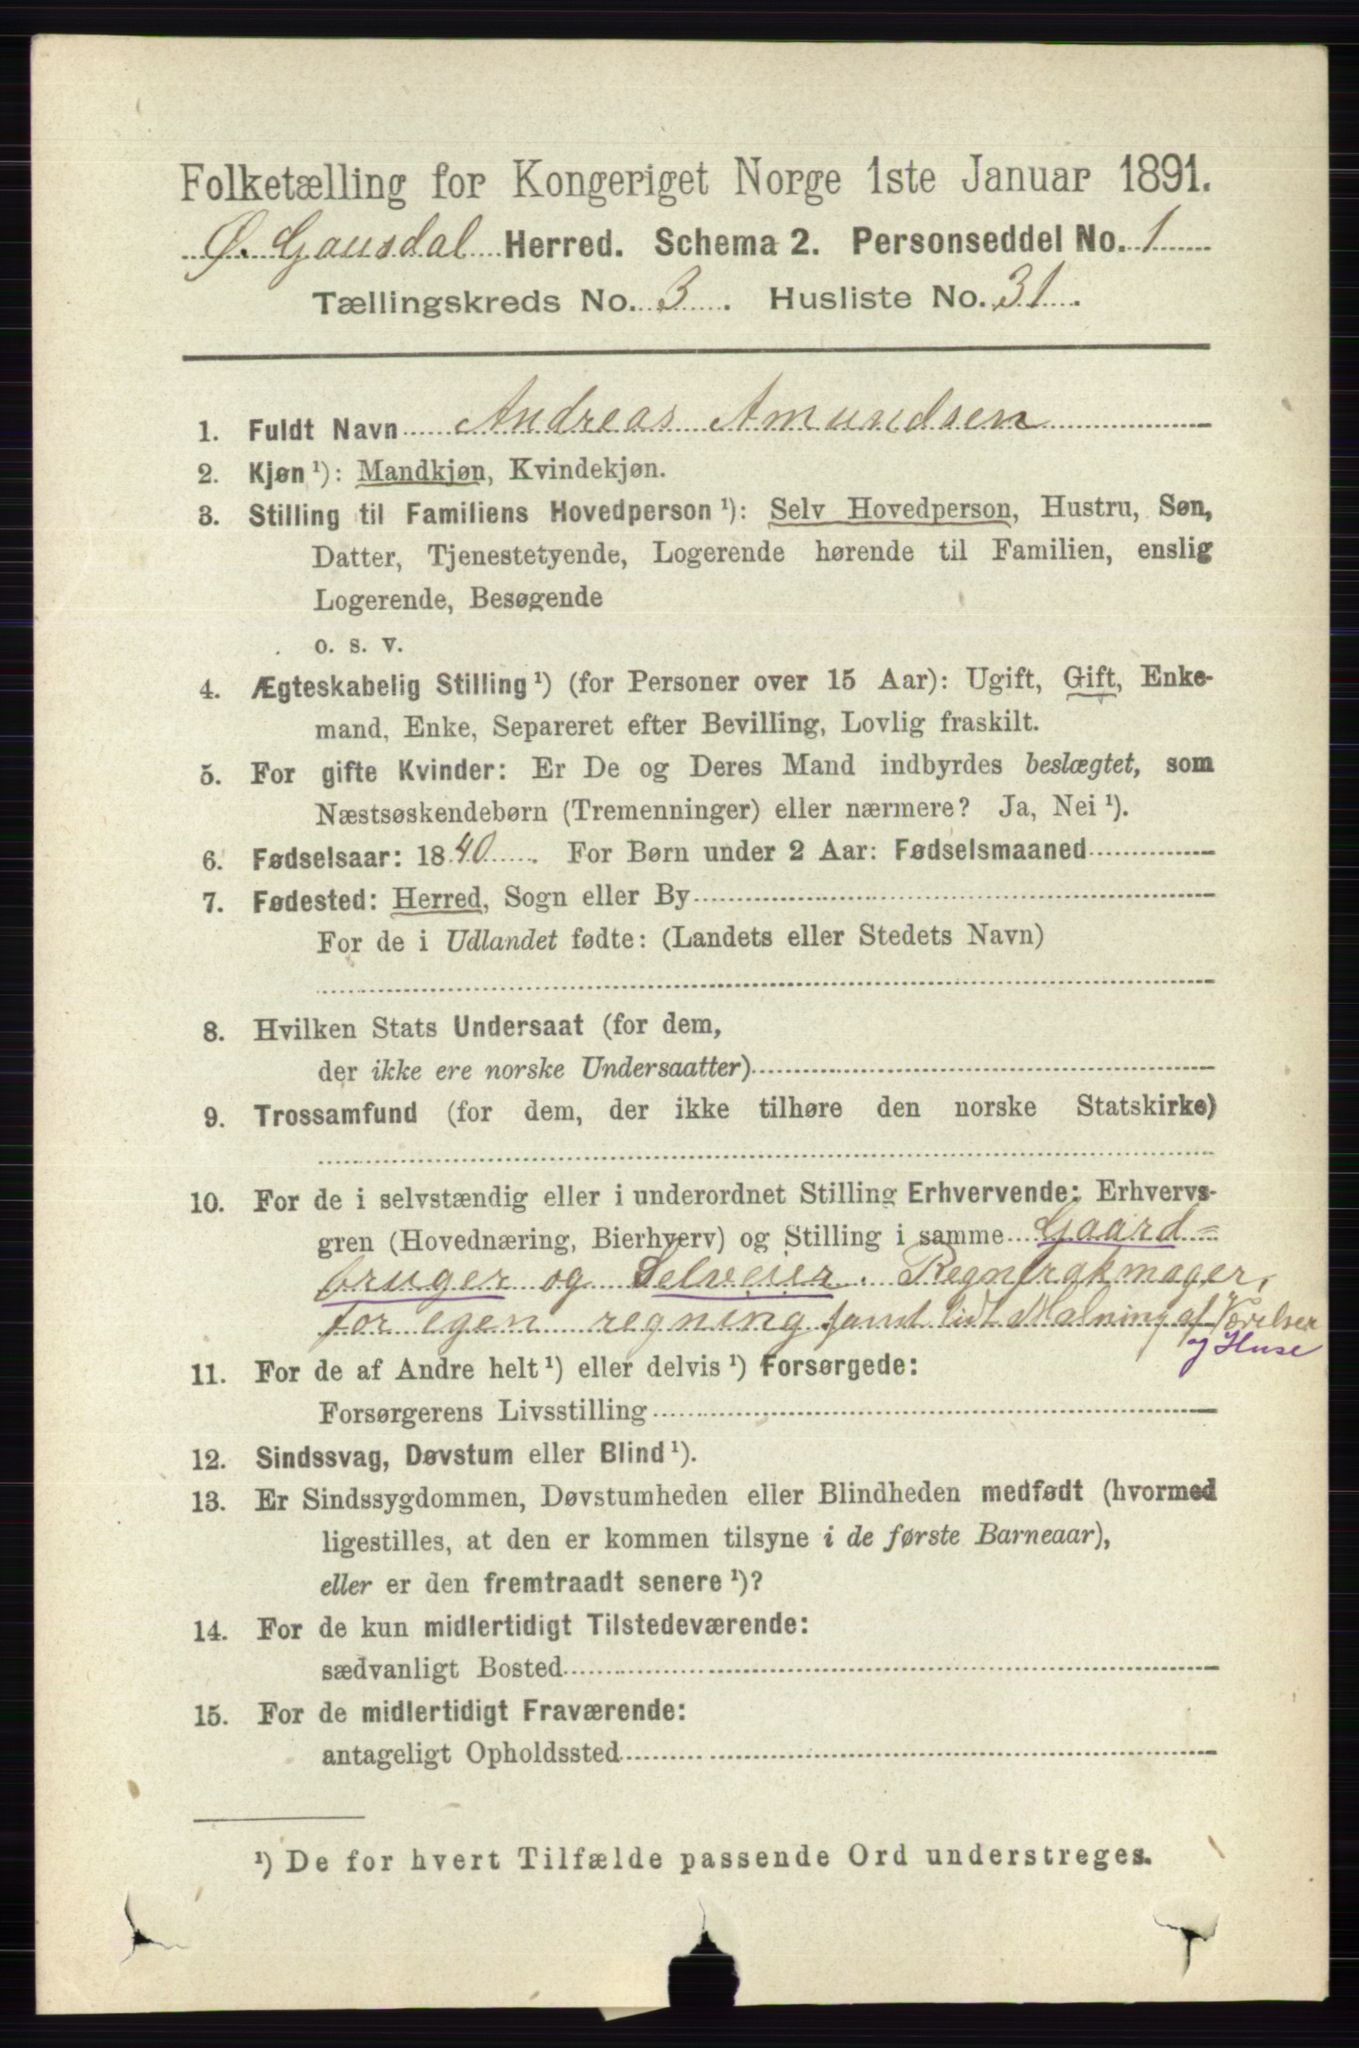 Folketælling for Kongeriget Norge 1ste Januar 1891.
Ø. Gausdal Herred. Schema 2. Personseddel No. 1
Tællingskreds No. 3. Husliste No. 31.
1. Fuldt Navn Andreas Amundsen
2. Kjøn ¹): Mandkjøn, Kvindekjøn.
3. Stilling til Familiens Hovedperson ¹): Selv Hovedperson, Hustru, Søn,
Datter, Tjenestetyende, Logerende hørende til Familien, enslig
Logerende, Besøgende
o. s. v.
4. Ægteskabelig Stilling ¹) (for Personer over 15 Aar): Ugift, Gift, Enke-
mand, Enke, Separeret efter Bevilling, Lovlig fraskilt.
5. For gifte Kvinder: Er De og Deres Mand indbyrdes beslægtet, som
Næstsøskendebørn (Tremenninger) eller nærmere? Ja, Nei ¹).
6. Fødselsaar: 1840. For Børn under 2 Aar: Fødselsmaaned
7. Fødested: Herred, Sogn eller By
For de i Udlandet fødte: (Landets eller Stedets Navn)
8. Hvilken Stats Undersaat (for dem,
der ikke ere norske Undersaatter)
9. Trossamfund (for dem, der ikke tilhøre den norske Statskirke)
10. For de i selvstændig eller i underordnet Stilling Erhvervende: Erhvervs-
gren (Hovednæring, Bierhverv) og Stilling i samme Gaard=
bruger og Selveier. Regnfrakmager,
for egen regning samt lidt Malning af Værelser
og Huse
11. For de af Andre helt ¹) eller delvis ¹) Forsørgede:
Forsørgerens Livsstilling
12. Sindssvag, Døvstum eller Blind ¹).
13. Er Sindssygdommen, Døvstumheden eller Blindheden medfødt (hvormed
ligestilles, at den er kommen tilsyne i de første Barneaar),
eller er den fremtraadt senere ¹)?
14. For de kun midlertidigt Tilstedeværende:
sædvanligt Bosted
15. For de midlertidigt Fraværende:
antageligt Opholdssted
¹) De for hvert Tilfælde passende Ord understreges.